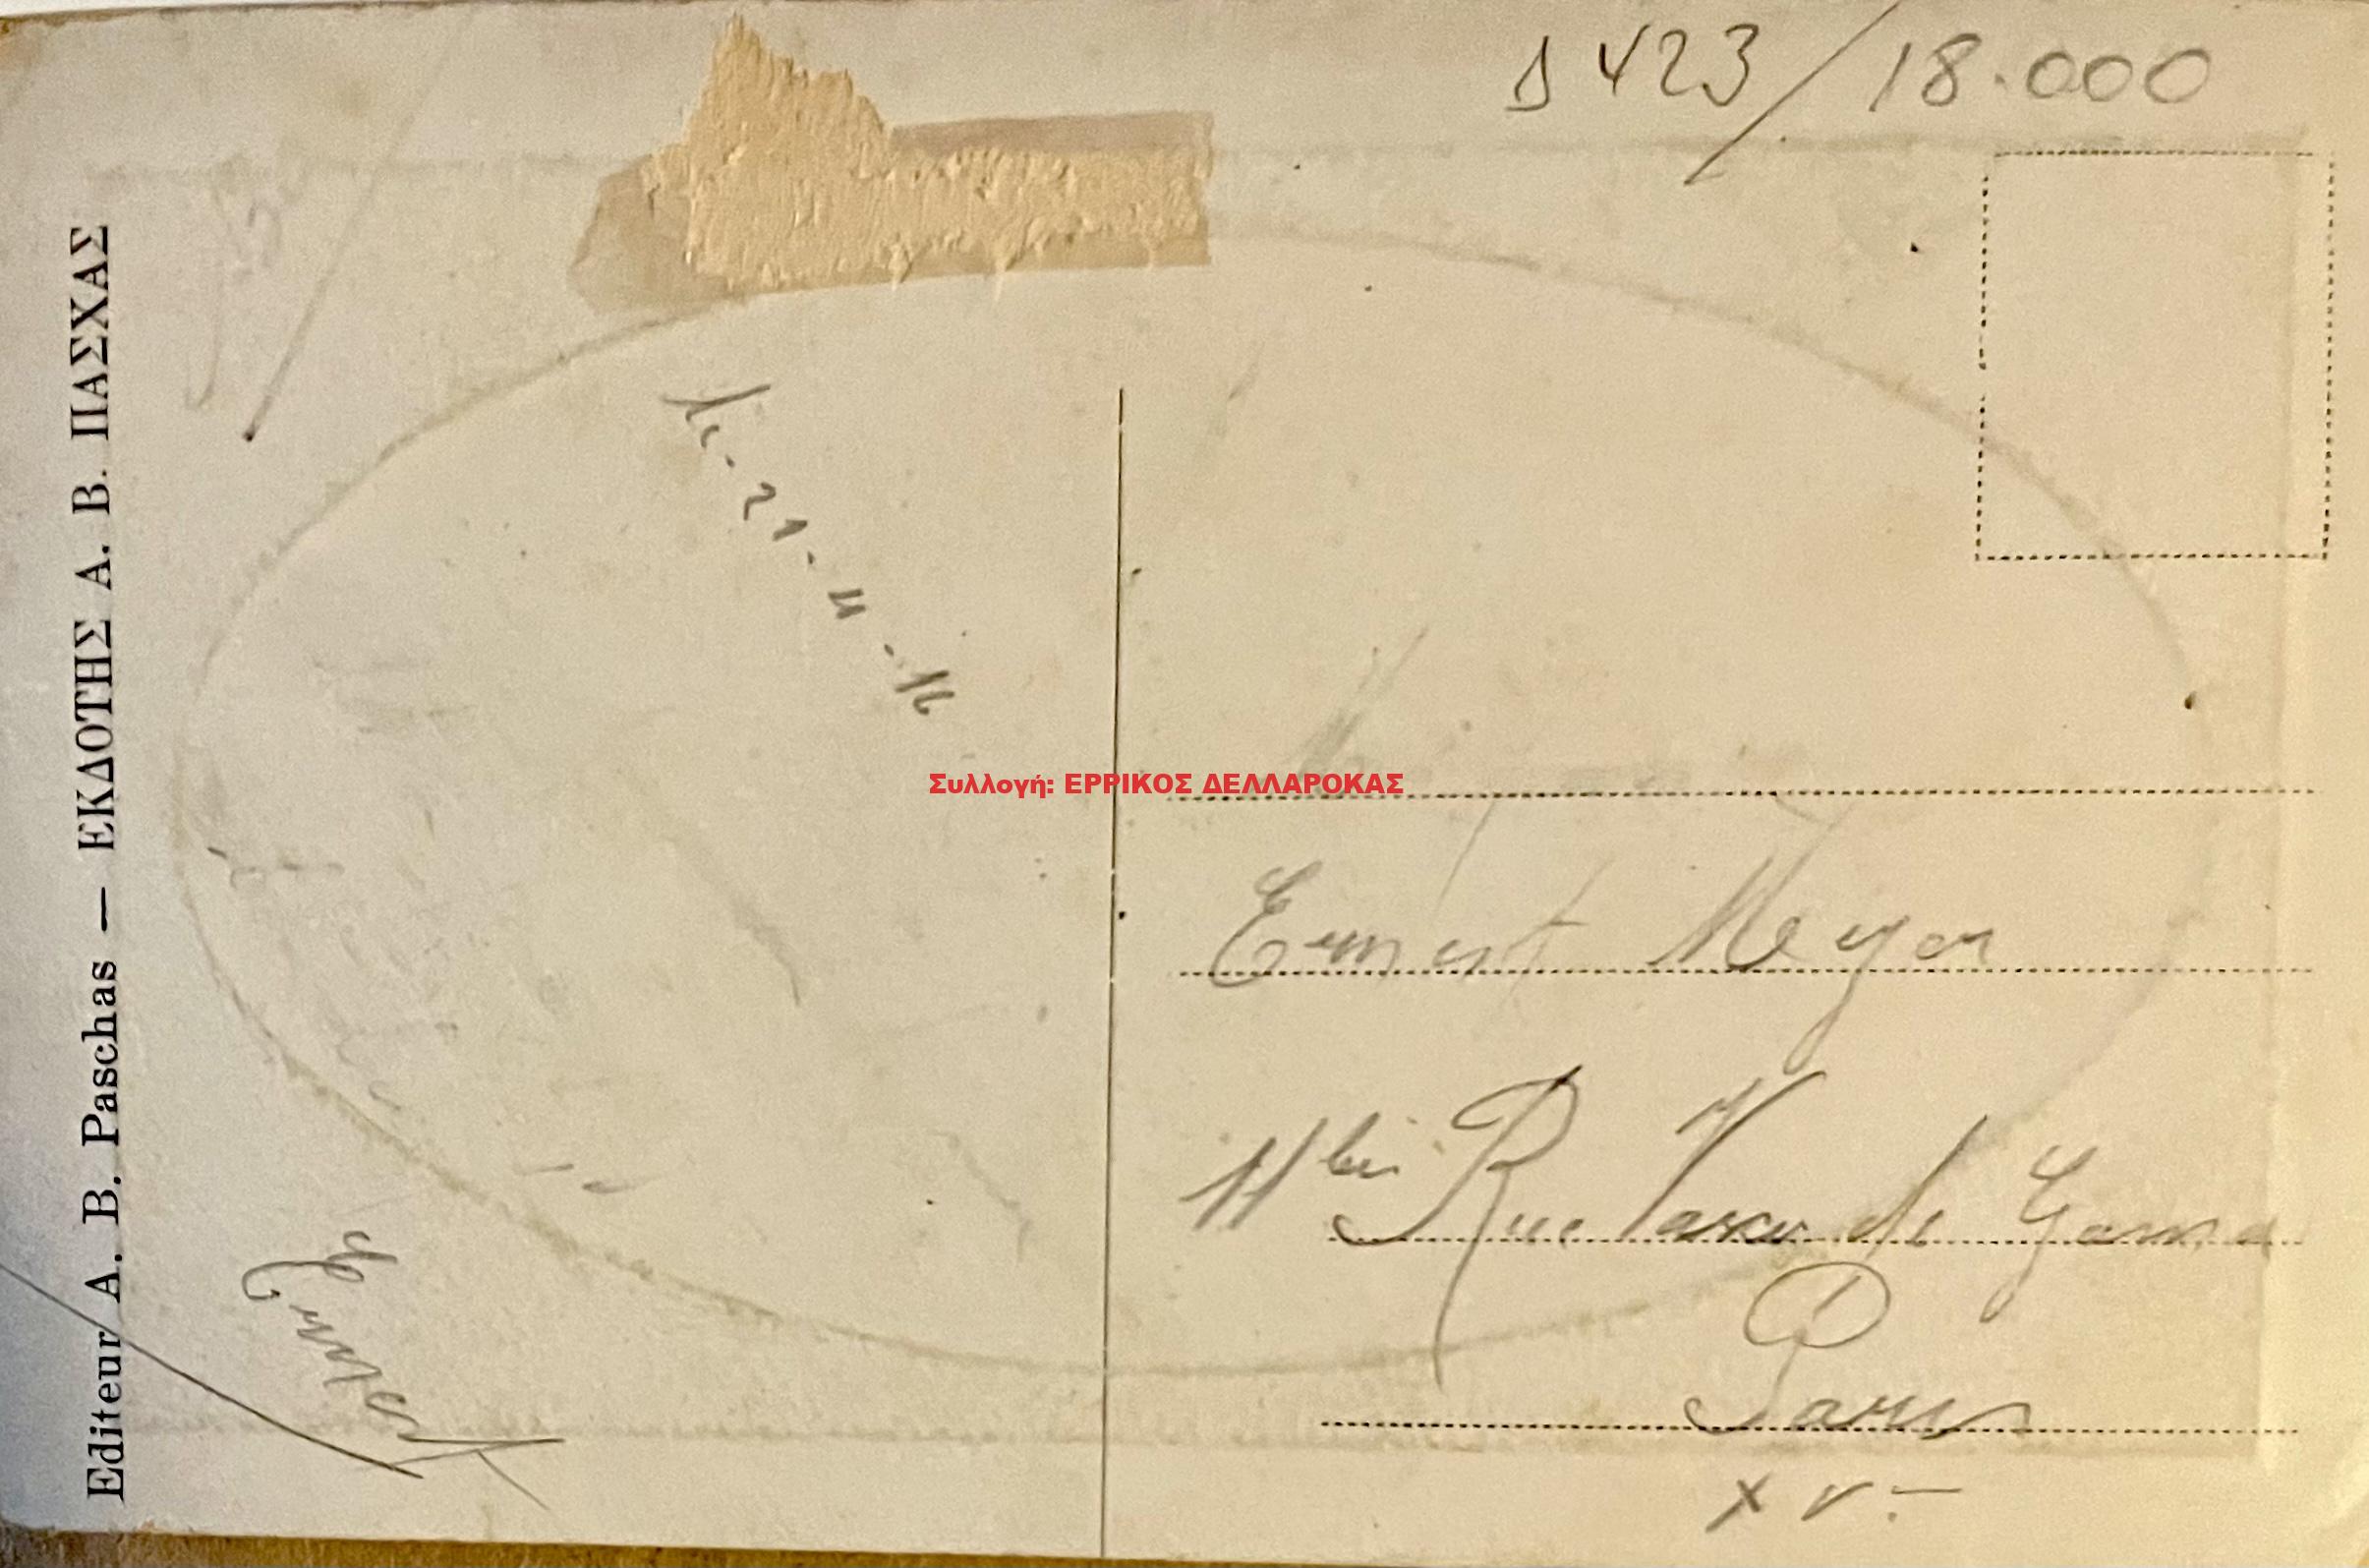 Δ 423/18.000
Editeur A. B. Paschas — ΕΚΔΟΤΗΣ Α. Β. ΠΑΣΧΑΣ
Le - 21 - 11 - 16
Συλλογή: ΕΡΡΙΚΟΣ ΔΕΛΛΑΡΟΚΑΣ
Ernest Meyer
11 bis Rue Vasco de Gama
Paris
XV -
Ernest